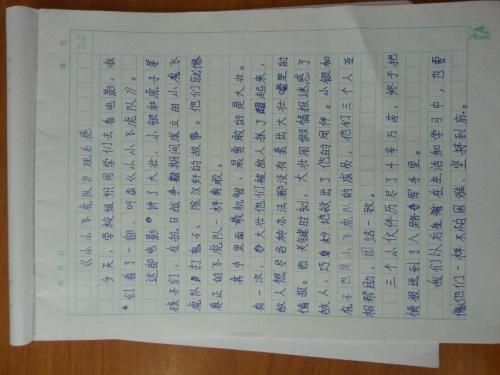 《小小飞虎队》观后感
今天，学校组织同学们去看电影，我
们看了一部，叫《小小飞虎队》。
这部电影讲了大壮、小银和虎子等
孩子们，在抗日战争期间成立的小虎飞
虎队，打鬼子、除汉奸的故事。他们就像
真正的飞虎队一样勇敢。
其中里面最机智、最勇敢的是大壮。
有一次，大壮他们被敌人抓了起来，
敌人想尽各种办法都没有套出大壮嘴里的
情报。而关键时刻，大壮用假情报迷惑了
敌人，巧妙地救出了他的同伴。小银和
虎子也是小飞虎队的成员，他们三个人互
相帮助，团结一致。
三个小伙伴历尽了千辛万苦，终于把
情报送到了八路军手里。
我们以后在生活和学习中，也要
像他们一样不怕困难，坚持到底。